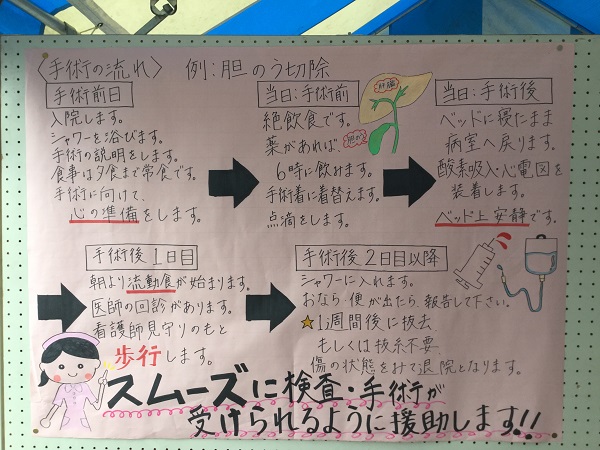 〈手術の流れ〉 例:胆のう切除
手術前日
入院します。
シャワーを浴びます。
手術の説明をします。
食事は夕食まで常食です。
手術に向けて、
心の準備をします。
当日:手術前
絶飲食です。
薬があれば、
6時に飲みます。
手術着に着替えます。
点滴をします。
肝臓
胆のう
当日:手術後
ベッドに寝たまま
病室へ戻ります。
酸素吸入・心電図を
装着します。
ベッド上安静です。
手術後1日目
朝より流動食が始まります。
医師の回診があります。
看護師見守りのもと
歩行します。
手術後2日目以降
シャワーに入れます。
おなら・便が出たら、報告して下さい。
★1週間後に抜去
もしくは抜糸不要
傷の状態をみて退院となります。
スムーズに検査・手術が
受けられるように援助します!!